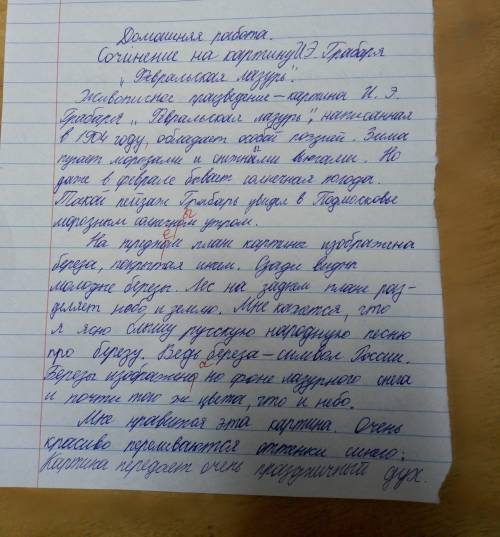 Домашняя работа.
Сочинение на картину И.Э. Грабаря
„Февральская лазурь".
Живописное празведение – картина И. Э.
Грабаря „Февральская лазурь", написанная
в 1904 году, обладает особой поэзией. Зима
пугает морозами и снежными вьюгами. Но
даже в феврале бывает солнечная погода.
Такой пейзаж Грабарь увидел в Подмосковье
морозным солнечным утром.
На преднем плане картины изображена
береза, покрытая инем. Сзади видны
молодые березы. Лес на заднем плане раз-
деляет небо и землю. Мне кажется, что
я ясно слышу русскую народную песню
про березу. Ведь береза – символ России.
Березы изображены на фоне лазурного снега
и почти того же цвета, что и небо.
Мне нравится эта картина. Очень
красиво переливаются оттенки синего.
Картина передает очень праздничный дух.